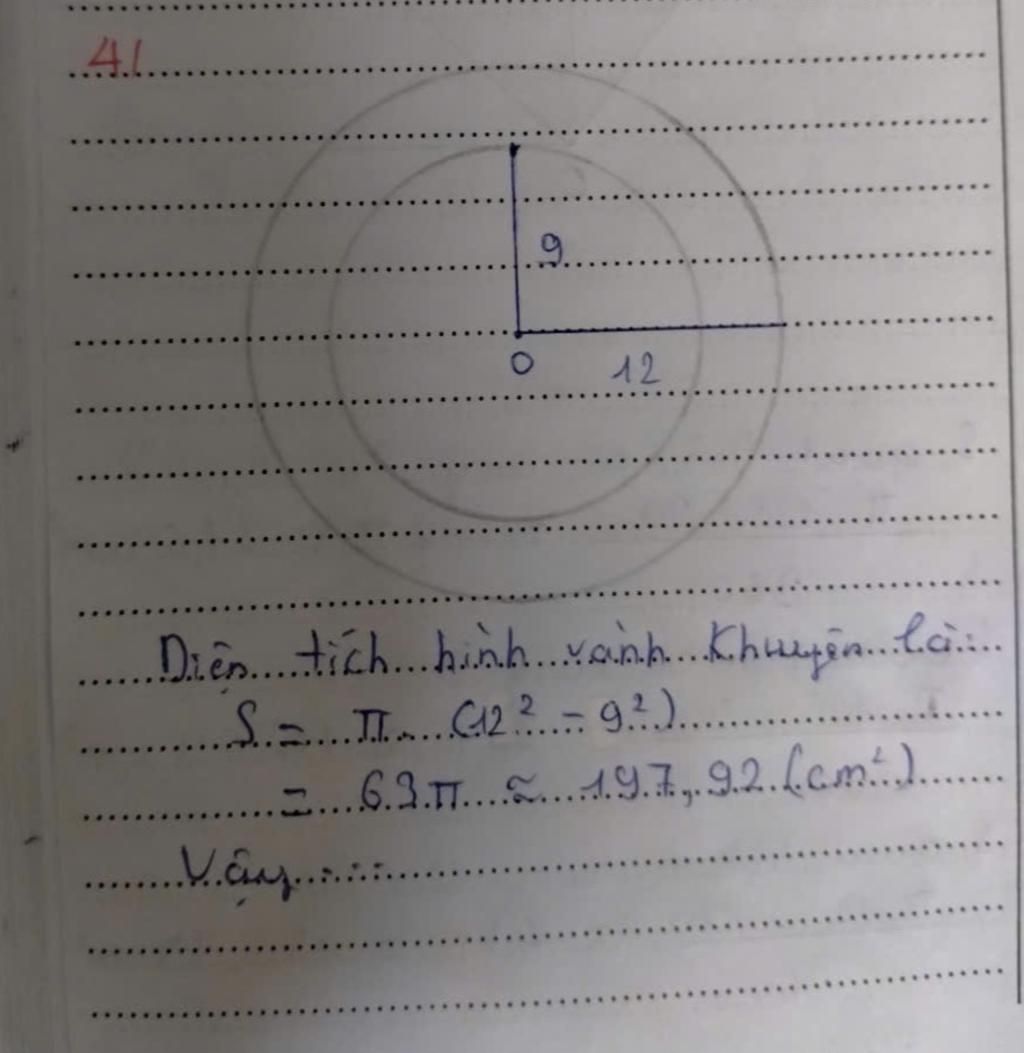 4.1
9
O
12
Diện tích hình vành khuyên là:
S = π. (12² - 9²)
= 63π ≈ 197,92 (cm²)
Vậy.....